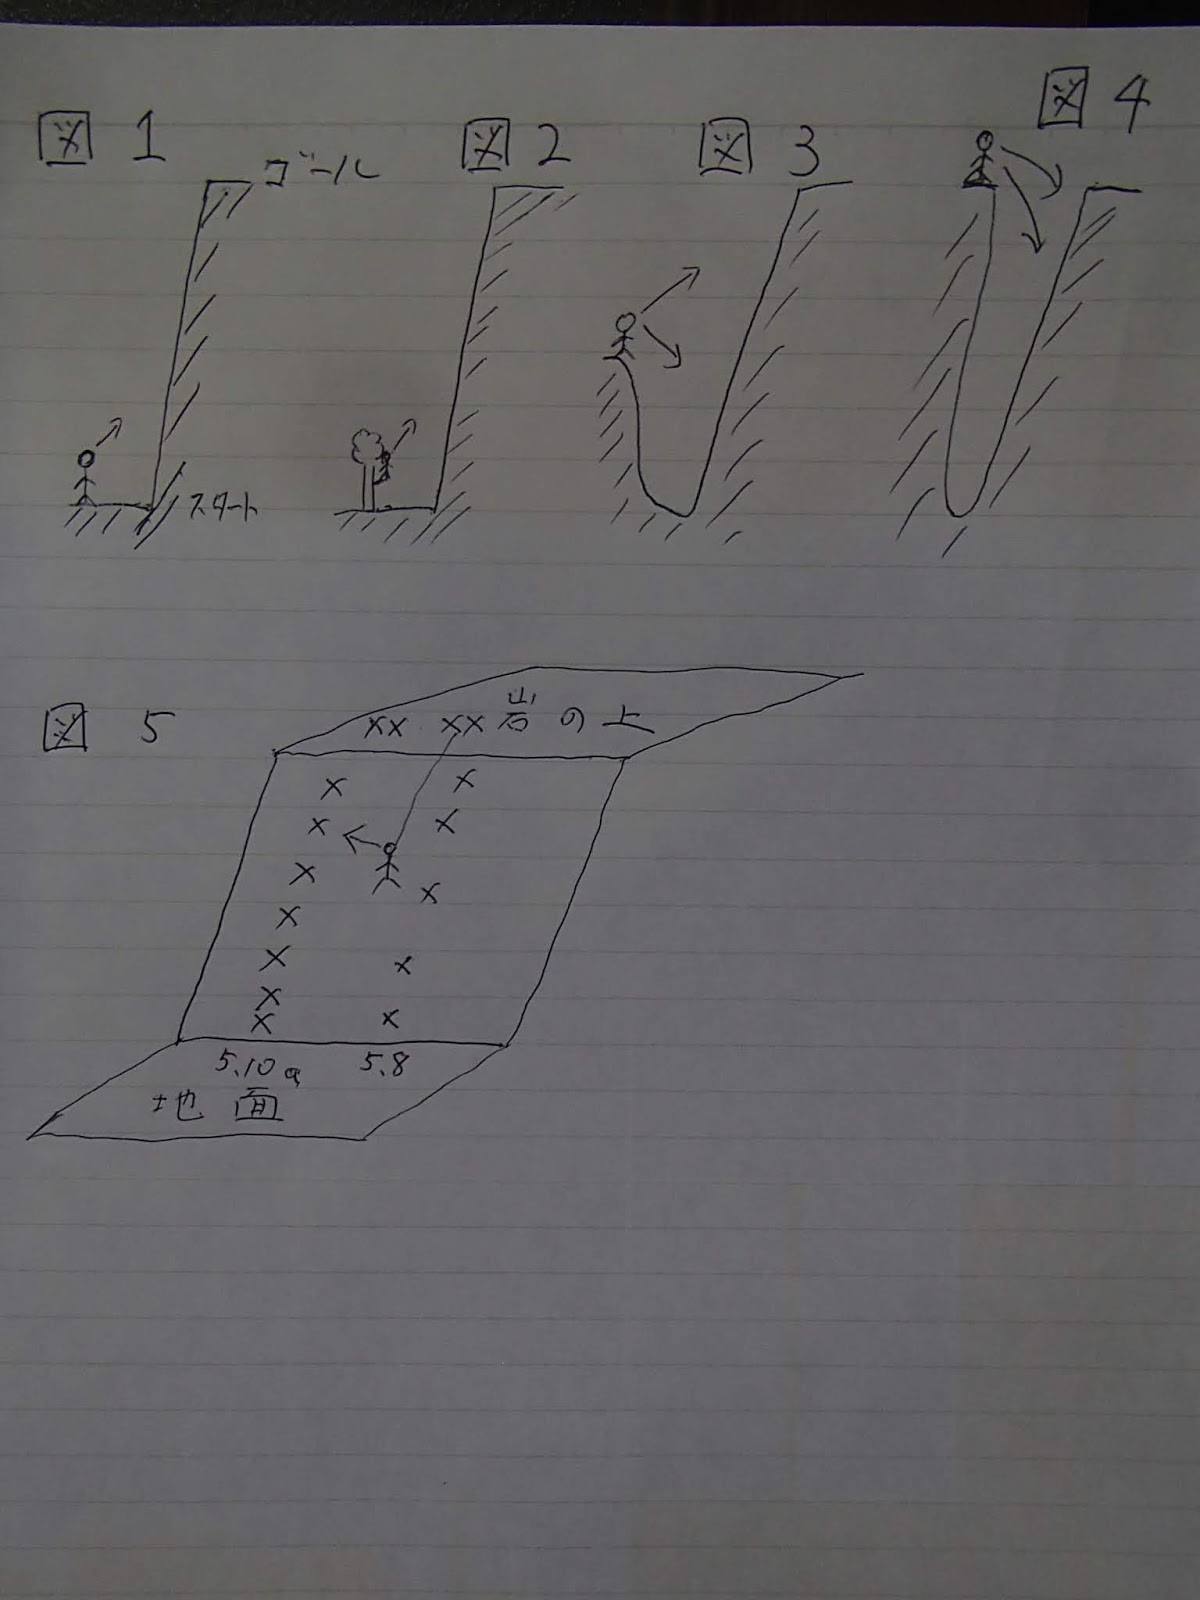 図 1
図 2
図 3
図 4
ゴール
スタート
図 5
xx xx 岩の上
x x
x x
x
x
x
x x
x
x x
5.10a 5.8
地面